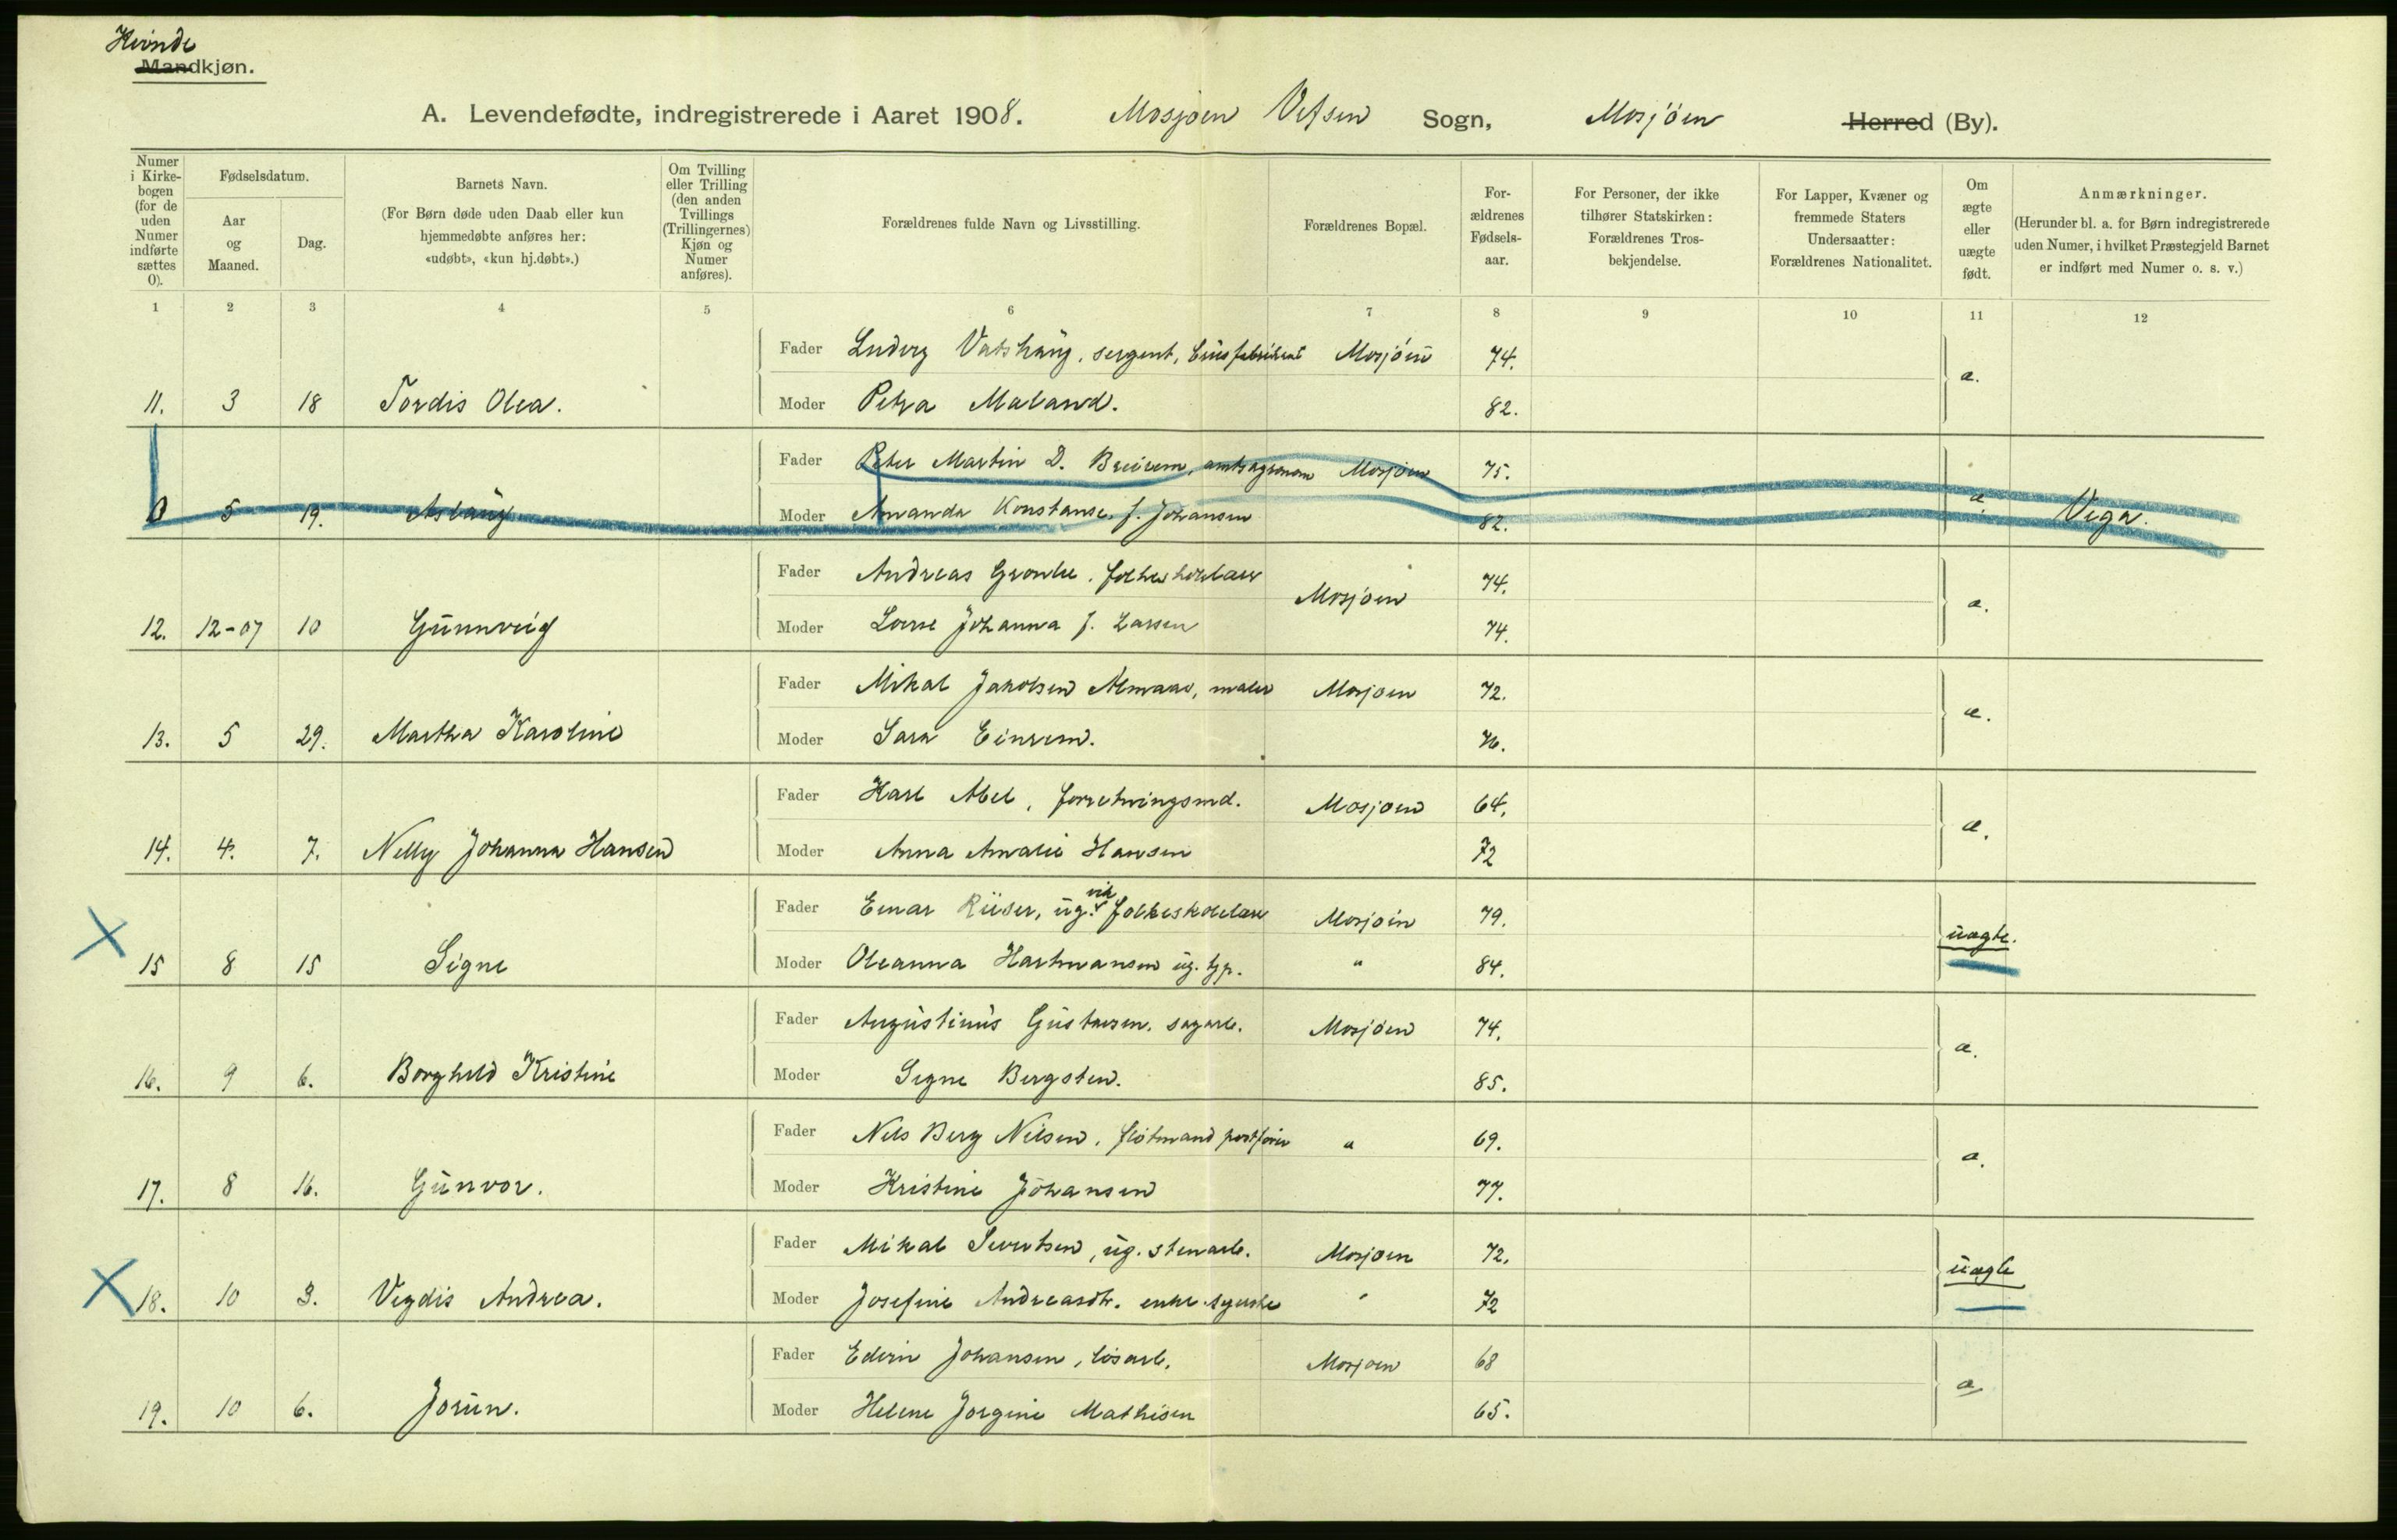 Kvinde
Mandkjøn.
A. Levendefødte, indregistrerede i Aaret 1908. Mosjøen Vefsen Sogn, Mosjöen Herred (By).
Numer i Kirke-bogen (for de uden Numer indførte sættes 0).
Fødselsdatum.
Aar og Maaned.
Dag.
Barnets Navn.
(For Børn døde uden Daab eller kun hjemmedøbte anføres her: «udøbt», «kun hj.døbt».)
Om Tvilling eller Trilling (den anden Tvillings (Trillingernes) Kjøn og Numer anføres).
Forældrenes fulde Navn og Livsstilling.
Forældrenes Bopæl.
For-ældrenes Fødsels-aar.
For Personer, der ikke tilhører Statskirken: Forældrenes Tros-bekjendelse.
For Lapper, Kvæner og fremmede Staters Undersaatter: Forældrenes Nationalitet.
Om ægte eller uægte født.
Anmærkninger.
(Herunder bl. a. for Børn indregistrerede uden Numer, i hvilket Præstegjeld Barnet er indført med Numer o. s. v.)
1 2 3 4 5 6 7 8 9 10 11 12
Fader Ludvig Vatshaug, sergent, Mosjöen 74. æ.
11. 3 18 Tordis Olea. Moder Petra Maland. 82.
Fader Peter Martin D. Breirem, amtsagronom Mosjøen 75. æ.
0 5 19. Aslaug Moder Amanda Konstanse f. Johansen 82. Vega.
Fader Andreas folkeskolelærer Mosjøen 74. æ.
12. 12-07 10 Gunnveig Moder Lovise Johanna f. Larsen 74.
Fader Mikal Jakobsen maler Mosjøen 72. æ.
13. 5 29. Martha Karoline Moder Sara Einrem. 76.
Fader Karl Abel, forretningsmd. Mosjøen 64. æ.
14. 4. 7. Nelly Johanna Hansen Moder Anna Amalie Hansen 72
Fader Einar Riiser, ug. vik folkeskolelærer Mosjøen 79. uægte.
15 8 15 Signe Moder Oleanna Hartmansen ug. tjp. " 84.
Fader Augustinus Gustavsen, sagarb. Mosjöen 74. æ.
16. 9 6. Borghild Kristine Moder Signe Bergsten. 85.
Fader Nils Berg Nilsen, flötmand postfører " 69. æ.
17. 8 16. Gunvor. Moder Kristine Johansen 77.
Fader Mikal Sivertsen, ug. stenarb. Mosjøen 72. uægte
18. 10 3. Vigdis Andrea. Moder Josefine Andreasdtr. enke syerske " 72
Fader Edvin Johansen, løsarb. Mosjøen 68 æ
19. 10 6. Jorun. Moder Helene Jørgine Mathisen 65.